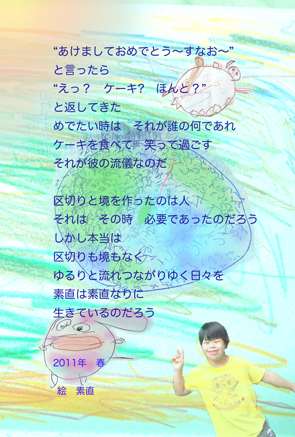 “あけましておめでとう〜すなお〜”
と言ったら
“えっ？　ケーキ?　ほんと？”
と返してきた
めでたい時は　それが誰の何であれ
ケーキを食べて　笑って過ごす
それが彼の流儀なのだ
区切りと境を作ったのは人
それは　その時　必要であったのだろう
しかし本当は
区切りも境もなく
ゆるりと流れつながりゆく日々を
素直は素直なりに
生きているのだろう
2011年　春
絵　素直